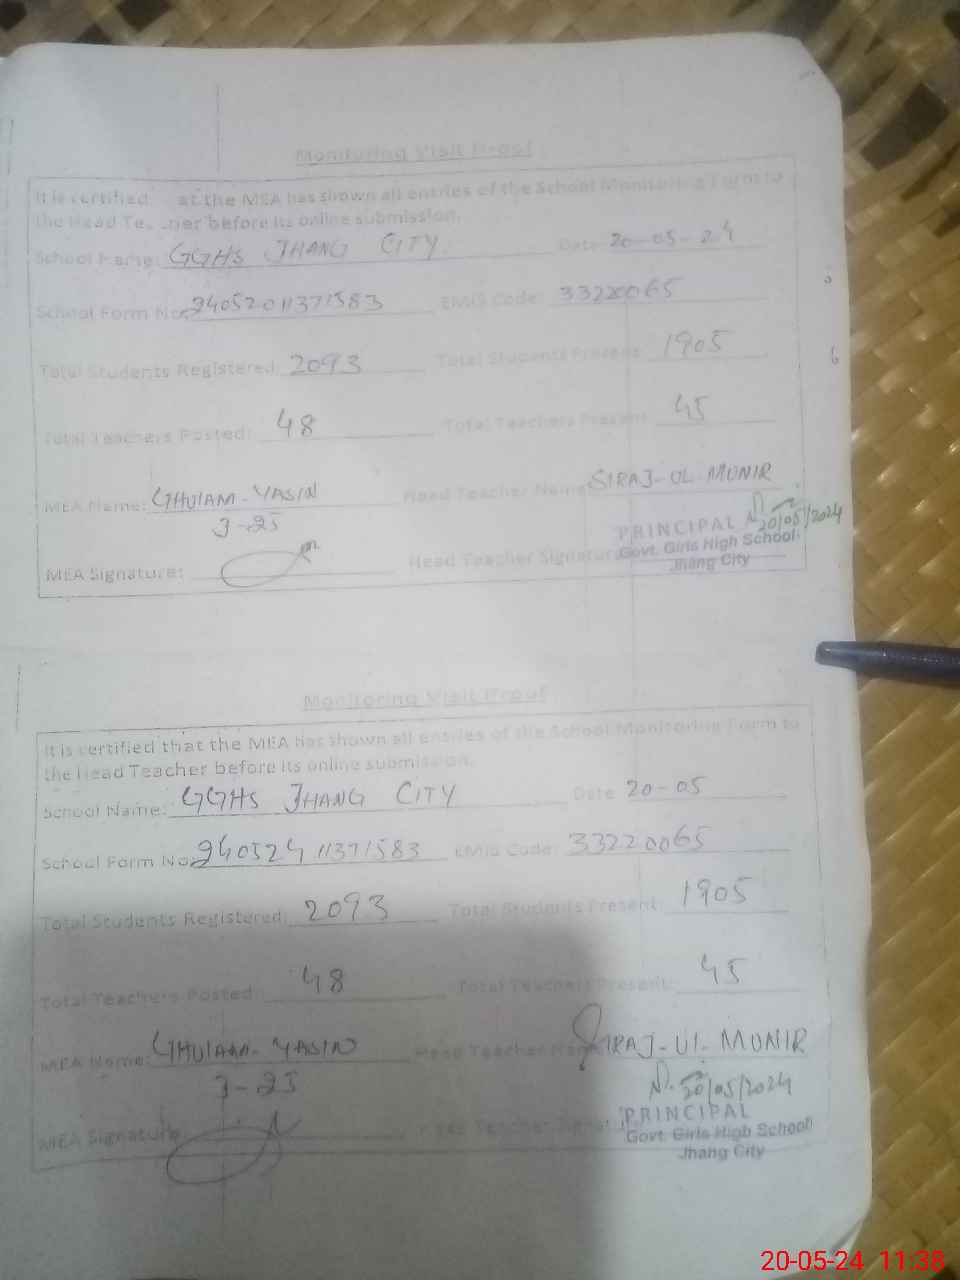 Monitoring Visit Proof
It is certified at the MEA has shown all entries of the School Monitoring Form to
the Head Te ner before its online submission.
School Name: GGHS JHANG CITY Date 20-05-24
School Form No: 24052011371583 EMIS Code: 33220065
Total Students Registered: 2093 Total Students Present: 1905
Total Teachers Posted: 48 Total Teachers Present: 45
MEA Name: GHULAM-YASIN Head Teacher Name: SIRAJ-UL-MUNIR
J-25 20/05/2024
PRINCIPAL
MEA Signature: Head Teacher Signature Govt. Girls High School
Jhang City
Monitoring Visit Proof
It is certified that the MEA has shown all entries of the School Monitoring Form to
the Head Teacher before its online submission.
School Name: GGHS JHANG CITY Date 20-05
School Form No: 24052411371583 EMIS Code: 33220065
Total Students Registered: 2093 Total Students Present: 1905
Total Teachers Posted: 48 Total Teachers Present: 45
MEA Name: GHULAM-YASIN Head Teacher Name SIRAJ-UL-MUNIR
J-25 20/05/2024
PRINCIPAL
MEA Signature Head Teacher Signat Govt. Girls High School
Jhang City
20-05-24 11:38